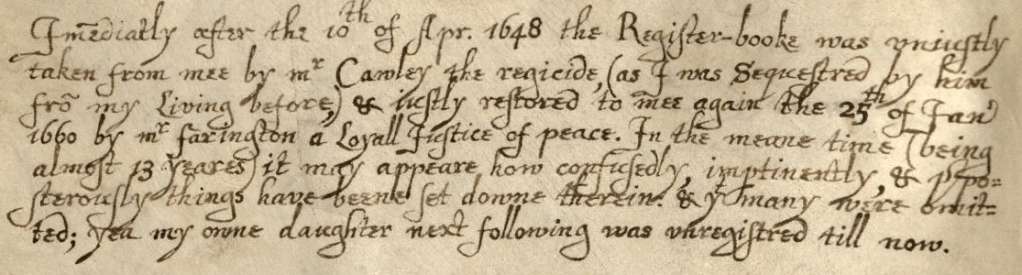 Im̄ediatly after the 10th of Apr. 1648 the Register-booke was uniustly
taken from mee by mr Cawley the regicide, (as I was Sequestred by him
frō my Living before,) & iustly restored to mee again the 25th of Jan)
1660 by mr farington a Loyall Justice of peace. In the meane time (being
almost 13 yeares) it may appeare how confusedly, imptinently, & ppo=
sterously things have beene set downe therein: & yt many were omit=
ted; yea my owne daughter next following was unregistred till now.